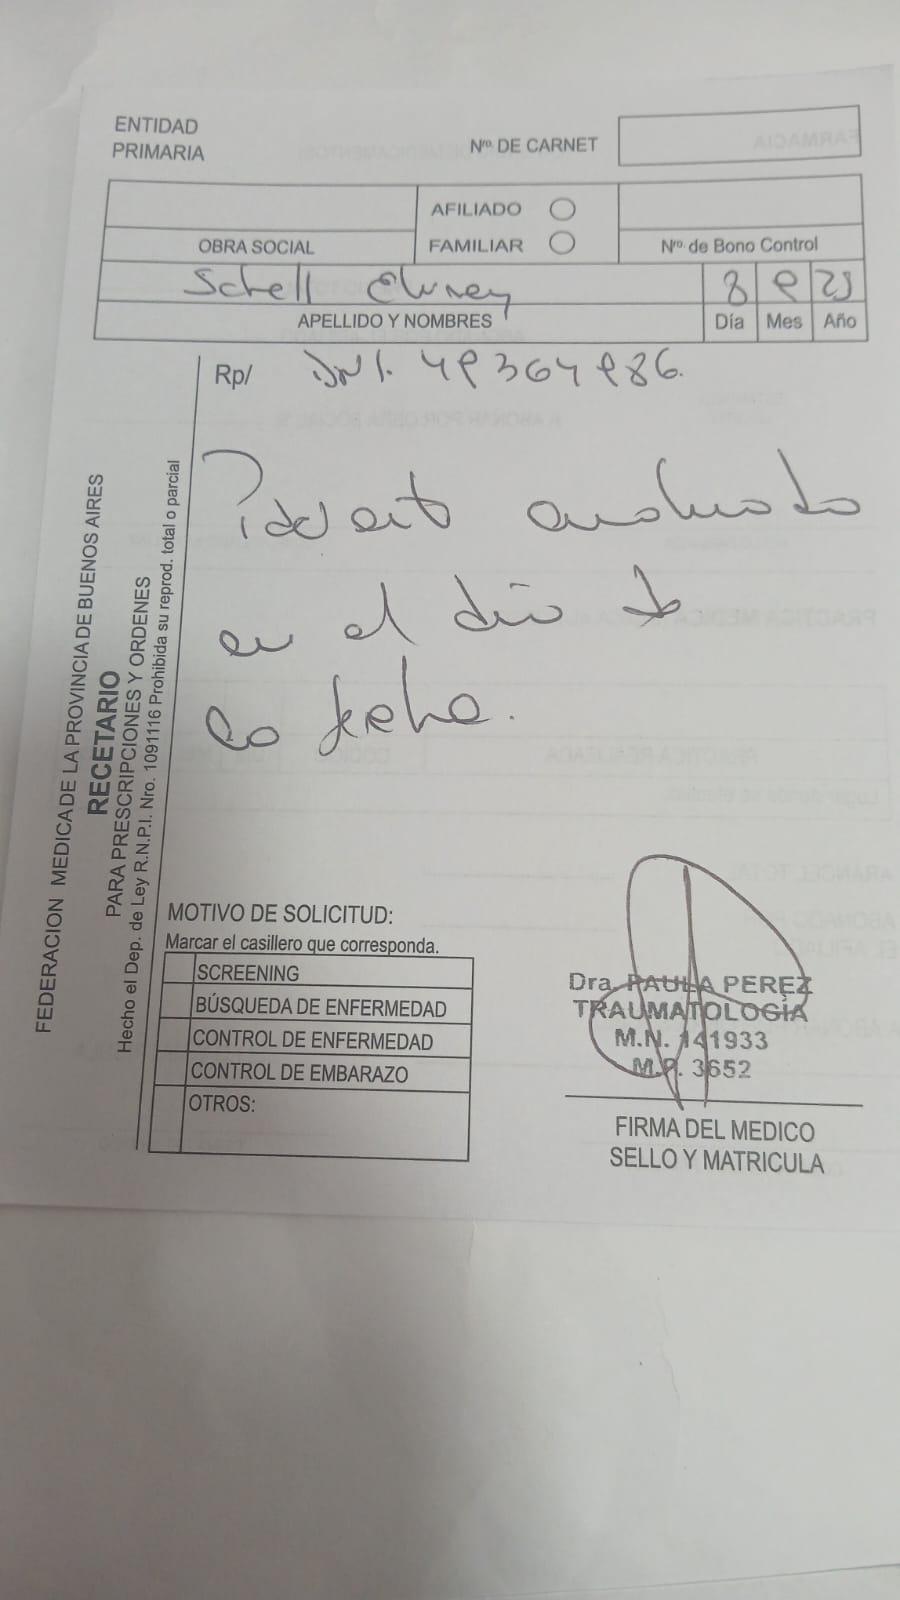 ENTIDAD
PRIMARIA
Nro. DE CARNET
AFILIADO
OBRA SOCIAL
FAMILIAR
Nro. de Bono Control
Schell
8 9 25
APELLIDO Y NOMBRES
Día Mes Año
Rp/ DNI. 49364986.
en el día de
la fecha.
FEDERACION MEDICA DE LA PROVINCIA DE BUENOS AIRES
RECETARIO
PARA PRESCRIPCIONES Y ORDENES
Hecho el Dep. de Ley R.N.P.I. Nro. 1091116 Prohibida su reprod. total o parcial
MOTIVO DE SOLICITUD:
Marcar el casillero que corresponda.
SCREENING
BÚSQUEDA DE ENFERMEDAD
CONTROL DE ENFERMEDAD
CONTROL DE EMBARAZO
OTROS:
Dra. PAULA PEREZ
TRAUMATOLOGÍA
M.N. 141933
M.P. 3652
FIRMA DEL MEDICO
SELLO Y MATRICULA